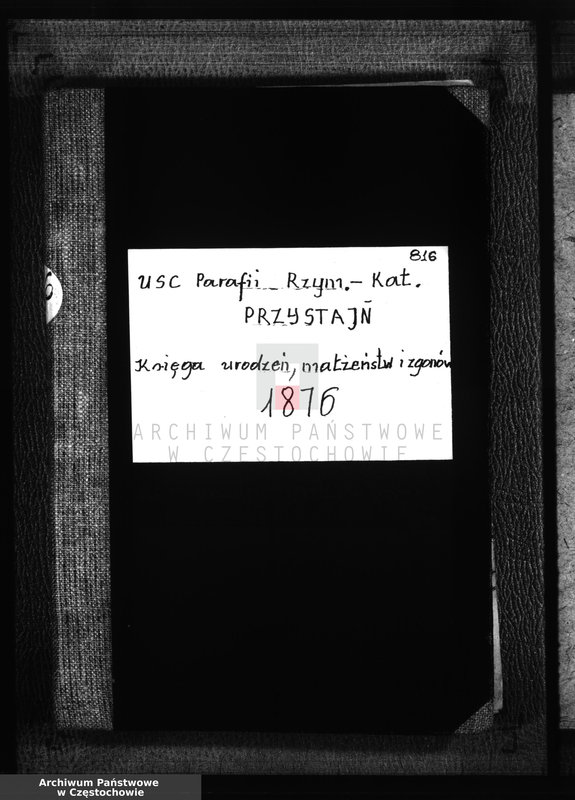 816
USC Parafii Rzym.-Kat.
PRZYSTAJŃ
Księga urodzeń, małżeństw i zgonów
1876
ARCHIWUM PAŃSTWOWE
W CZĘSTOCHOWIE
6
Archiwum Państwowe
w Częstochowie